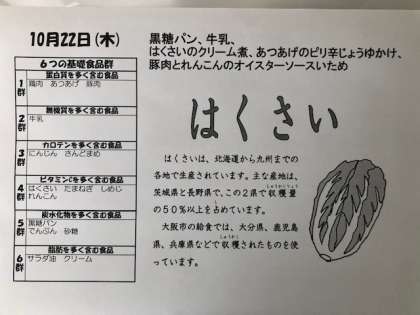 10月22日(木)
黒糖パン、牛乳、
はくさいのクリーム煮、あつあげのピリ辛じょうゆかけ、
豚肉とれんこんのオイスターソースいため
6つの基礎食品群
蛋白質を多く含む食品
1群 鶏肉 あつあげ 豚肉
無機質を多く含む食品
2群 牛乳
カロテンを多く含む食品
3群 にんじん さんどまめ
ビタミンCを多く含む食品
4群 はくさい たまねぎ しめじ
れんこん
炭水化物を多く含む食品
5群 黒糖パン
でんぷん 砂糖
脂肪を多く含む食品
6群 サラダ油 クリーム
はくさい
はくさいは、北海道から九州までの
各地で生産されています。主な産地は、
しゅうかくりょう
茨城県と長野県で、この2県で収穫量
し
の50%以上を占めています。
大阪市の給食では、大分県、鹿児島
しゅうかく
県、兵庫県などで収穫されたものを使
っています。